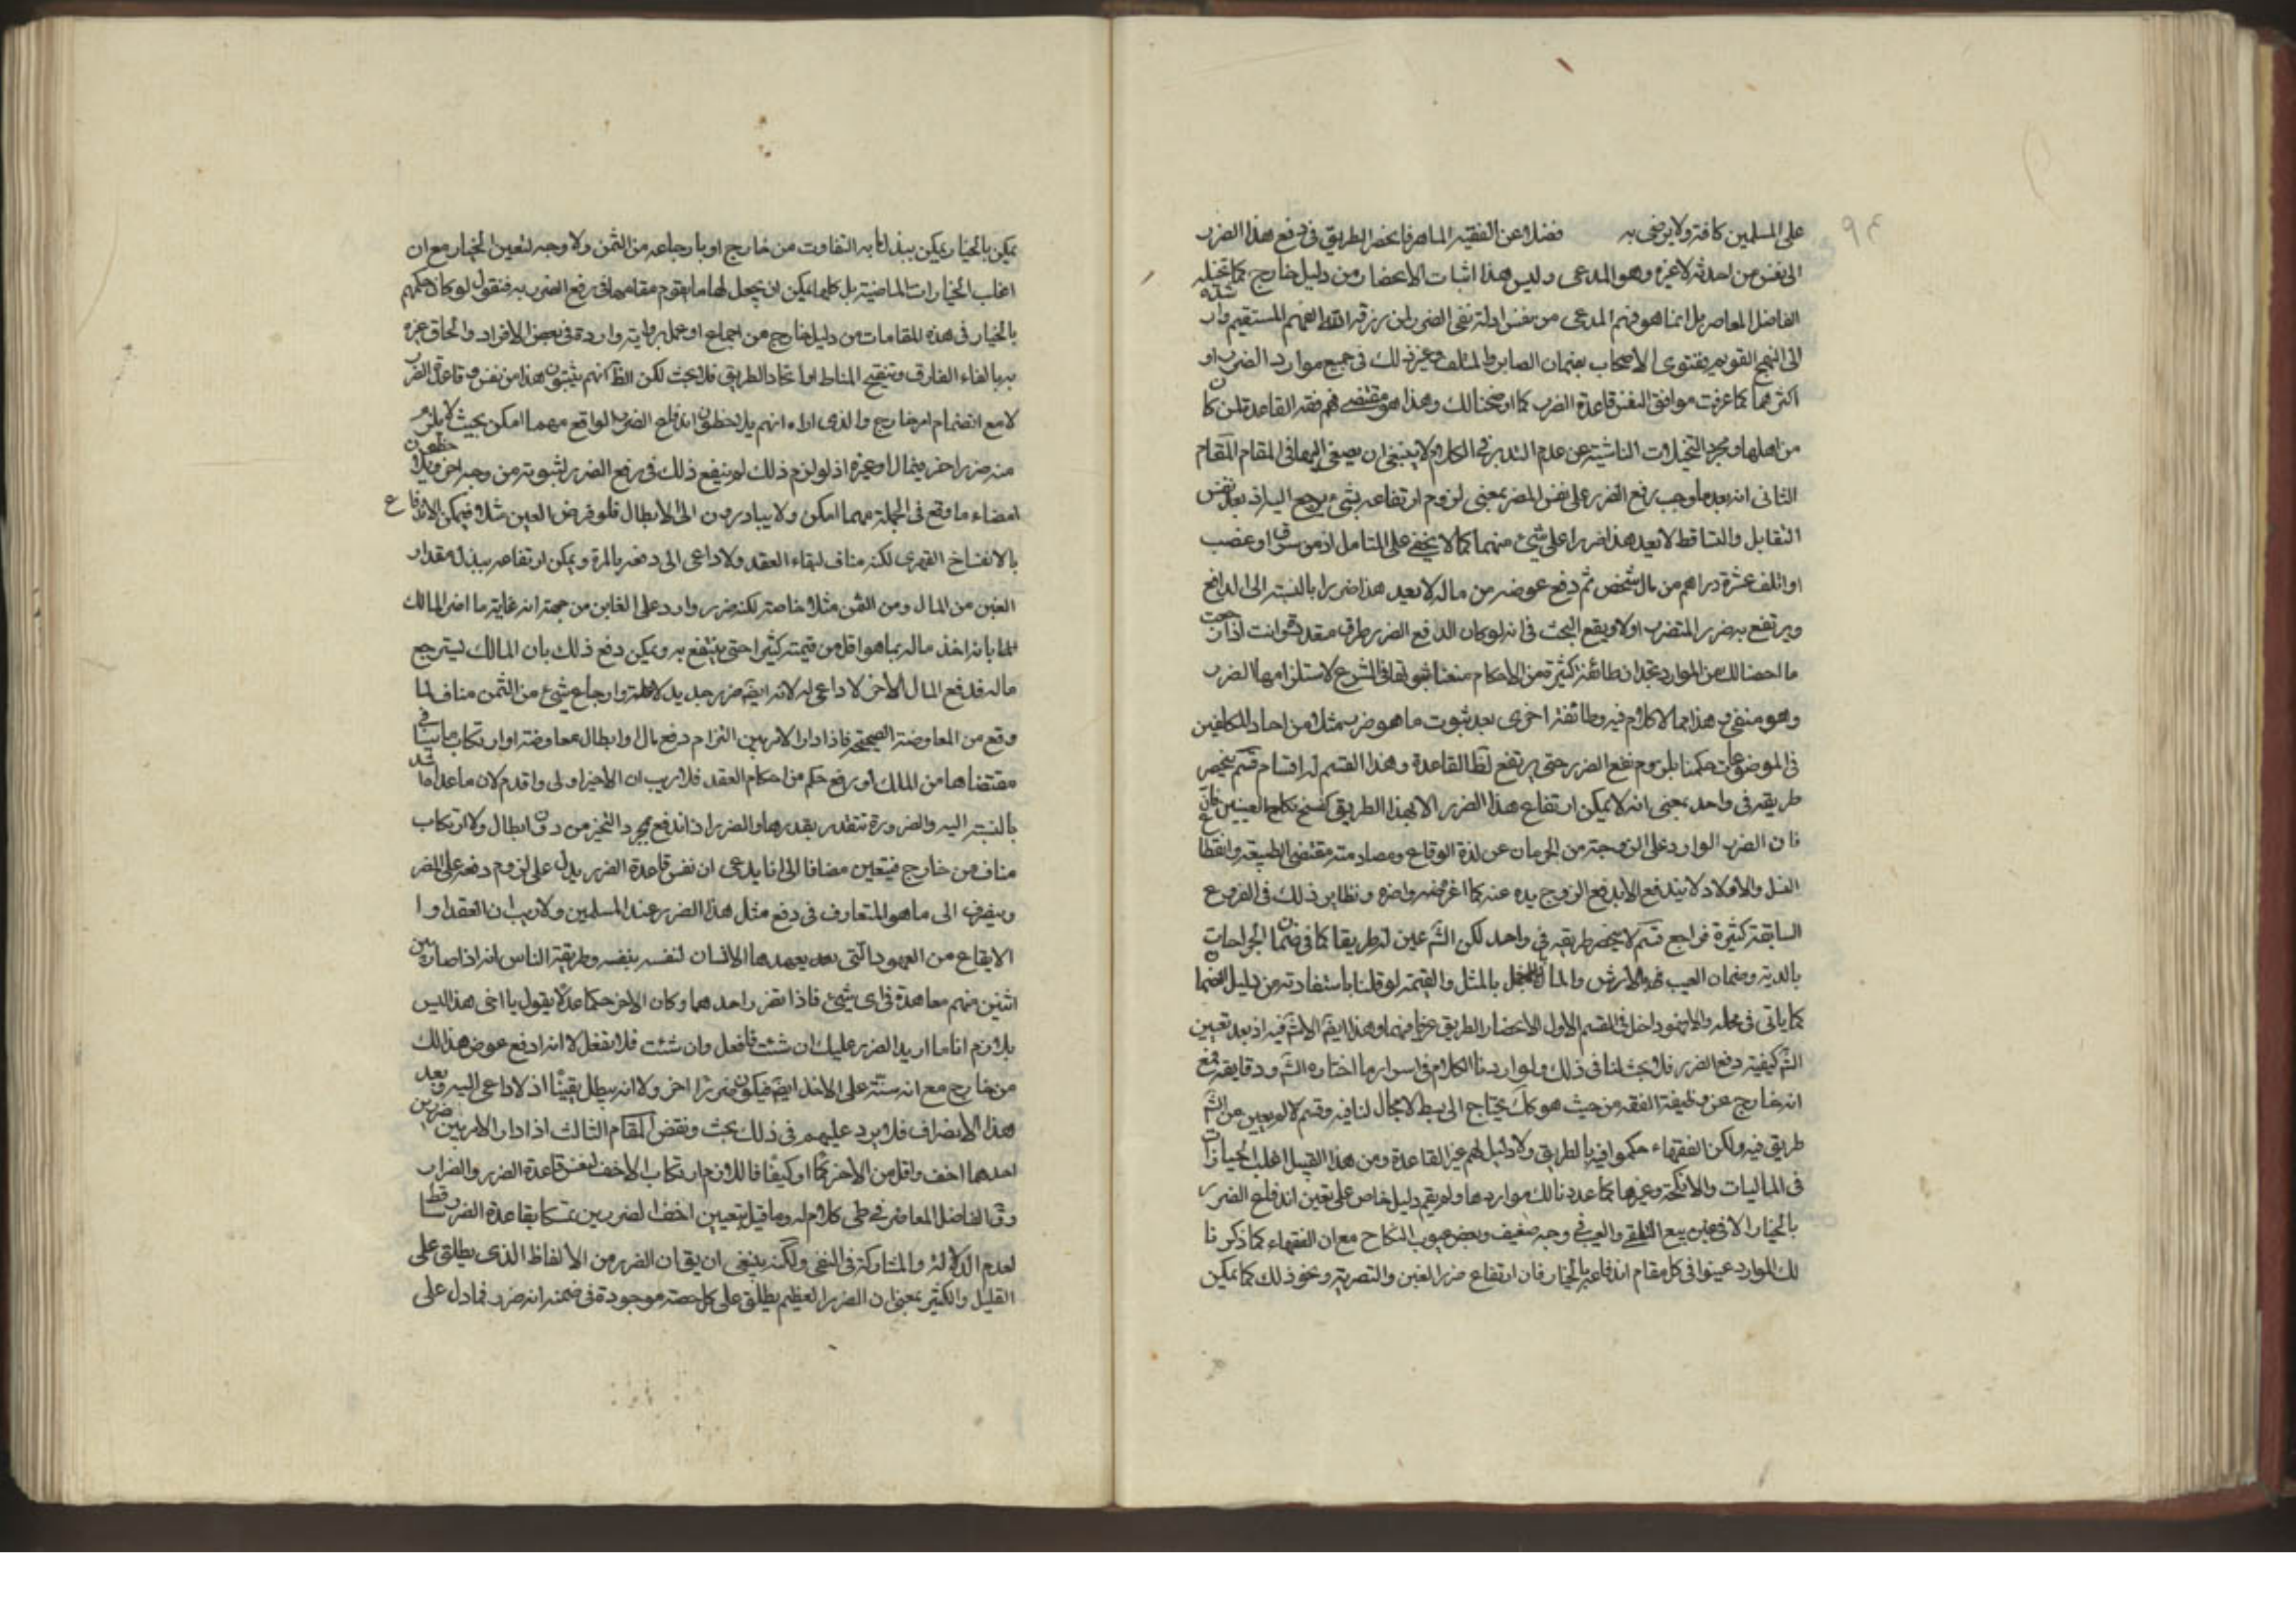 ٩٤
على المسلمين كافة ولا يرضى به فضلا عن الفقيه الماهر فانحصر الطريق فى دفع هذا الضرر
الى نفس من احدثه لا غيره وهو المدعى وليس هذا اثبات الانحصار من دليل خارج كما تخيله
الفاضل المعاصر بل انما هو فهم المدعى من نفس ادلة نفى الضرر لمن رزقه الله الفهم المستقيم وارشده
الى النهج القويم بفتوى الاصحاب بضمان الصابر والمتلف وغير ذلك فى جميع موارد الضرر او
اكثرهما كما عرفت موافق لنفس قاعدة الضرر كما اوضحنا لك وهذا هو مقتضى فهم فقه القاعدة لمن كان
من اهلها ومجرد التخيلات الناشئة عن عدم التدبر فى الكلام لا ينبغى ان يصغى اليها فى المقام المقام
الثانى انه بعد ما وجب رفع الضرر على نفس المضر بمعنى لزوم ارتفاعه بشئ يرجع اليه اذ بعد نفس
التقابل والتساقط لا يعد هذا ضررا على شئ منهما كما لا يخفى على المتامل اذ من سرق او غصب
او اتلف عشرة دراهم من مال شخص ثم دفع عوضه من ماله لا يعد هذا ضررا بالنسبة الى الدافع
ويرتفع به ضرر المتضرر اولا ويقع البحث فى انه لو كان الدفع الضرر طرق متعددة وانت اذا راجعت
ما احصنا لك من الموارد تجد ان طائفة كثيرة من الاحكام منعنا ثبوتها فى الشرع لاستلزامها الضرر
وهو منفى و هذا مما لا كلام فيه وطائفة اخرى بعد ثبوت ما هو ضرر مثلا من احاد المكلفين
فى الموضوعات حكمنا بلزوم نفع الضرر حتى يرتفع لظ القاعدة وهذا القسم له اقسام قسم ينحصر
طريقه فى واحد بمعنى انه لا يمكن ارتفاع هذا الضرر الا بهذا الطريق كفسخ نكاح العينين
فان الضرر الوارد على الزوجة من الحرمان عن لذة الوقاع ومصادمته مقتضى الطبيعة وانقطاع
النسل والاولاد لا يندفع الا بدفع الزوج يده عنه كما اغرضه واضره ونظاير ذلك فى الفروع
السابقة كثيرة فراجع قسم لا ينحصر طريقه فى واحد لكن الش عين له طريقا كما فى ضمان الجراحات
بالدية وضمان العيب بالارش والمال بالمثل والقيمة لو قلنا باستفادته من دليل الضمان
كما ياتى فى محله والا فهو داخل فى القسم الاول لانحصار الطريق عرفا فيهما وهذا ايضا لا بحث فيه اذ بعد تعيين
الش كيفية دفع الضرر فلا بحث لنا فى ذلك ولو اردنا الكلام فى اسرار ما اختاره الش ودقايقه فمع
انه خارج عن وظيفة الفقه من حيث هو كك يحتاج الى بسط لا مجال لنا فيه وقسم لا لم يعين من الش
طريق فيه ولكن الفقهاء حكموا فيه بالطريق ولا دليل لهم غير القاعدة ومن هذا القبيل اغلب الخيارات
فى الماليات والانكحة وغيرها كما عددنا لك مواردها ولم يقم دليل خاص على تعين اندفاع الضرر
بالخيار الا فى غبن بيع التلقى والعيب فى وجه ضعيف وبعض عيوب النكاح مع ان الفقهاء كما ذكرنا
لك الموارد عينوا فى كل مقام اندفاعه بالخيار فان ارتفاع ضرر الغبن والتصرية ونحو ذلك كما يمكن
يمكن بالخيار يمكن ببذل ما به التفاوت من خارج او بارجاعه من الثمن ولا وجه لتعين الخيار مع ان
اغلب الخيارات الماضية بل كلها يمكن ان يجعل لها ما يقوم مقامها فى رفع الضرر به فنقول لو كان حكمهم
بالخيار فى هذه المقامات من دليل خارج من اجماع او عمل برواية واردة فى بعض الافراد والحاق غيره
به بالغاء الفارق وتنقيح المناط او اتحاد الطريق فلا بحث لكن الظ انهم يثبتون هذا من نفس قاعدة الضرر
لا مع انضمام امر خارج والذى اراه انهم يلاحظون اندفاع الضرر الواقع مهما امكن بحيث لا يلزم
منه ضرر اخر فى مال او غيره اذ لو لزم ذلك لم ينفع ذلك فى رفع الضرر لثبوته من وجه اخر ويلاحظون
امضاء ما وقع فى الجملة مهما امكن ولا يبادرون الى الابطال فلو فرض الغبن مثلا فيمكن الارتفاع
بالانفساخ القهرى لكنه مناف لبقاء العقد ولا داعى الى دفعه بالمرة ويمكن ارتفاعه ببذل مقدار
الغبن من المال ومن الثمن مثلا خاصة لكنه ضرر وارد على الغابن من جهة انه غاية ما اضر المالك
لما بانه اخذ ماله بما هو اقل من قيمته كثيرا حتى ينتفع به ويمكن دفع ذلك بان المالك يسترجع
ماله فدفع المال الاخر لا داعى له لانه ايضا ضرر جديد لا محالة وارجاع شئ من الثمن مناف لما
وقع من المعاوضة الصحيحة فاذا دار الامر بين التزام دفع مال او ابطال معاوضة او ارتكاب ما ينافى
مقتضاها من الملك او رفع حكم من احكام العقد فلا ريب ان الاخير اولى واقدم لان ما عداه اشد
بالنسبة اليه والضرورة تتقدر بقدرها والضرر اذا اندفع بمجرد التخير من دون ابطال ولا ارتكاب
مناف من خارج فيتعين مضافا الى انا ندعى ان نفس قاعدة الضرر يدل على لزوم دفعه على المضر
وينصرف الى ما هو المتعارف فى دفع مثل هذا الضرر عند المسلمين ولا ريب ان العقد او
الايقاع من العهود التى يعهدها الانسان لنفسه بنفسه وطريقة الناس انه اذا صار بين
اثنين منهم معاهدة فى اى شئ فاذا نقض واحد هما وكان الاخر حكما عدلا يقول يا اخى هذا ليس
بلازم انا ما اريد الضرر عليك ان شئت فافعل وان شئت فلا تفعل لا انه ادفع عوض هذا لك
من خارج مع انه ستة على الاخذ ايضا فيكون ضررا اخر ولا انه يبطل يقينا اذ لا داعى اليه وبعد
هذا الانصراف فلا يرد عليهم فى ذلك بحث ونقض المقام الثالث اذا دار الامر بين ضررين
احدهما اخف واقل من الاخر كما او كيفا فاللازم ارتكاب الاخف لنفس قاعدة الضرر والضرار
وق الفاضل المعاصر فى طى كلام له وما قيل بتعيين اخف الضررين تمسكا بقاعدة الضرر ساقط
لعدم الدلالة والمشاركة فى النفى ولكنه ينبغى ان يقال ان الضرر من الالفاظ الذى يطلق على
القليل والكثير بمعنى ان الضرر العظيم يطلق على كل حصة موجودة فى ضمنه انه ضرر فما دل على